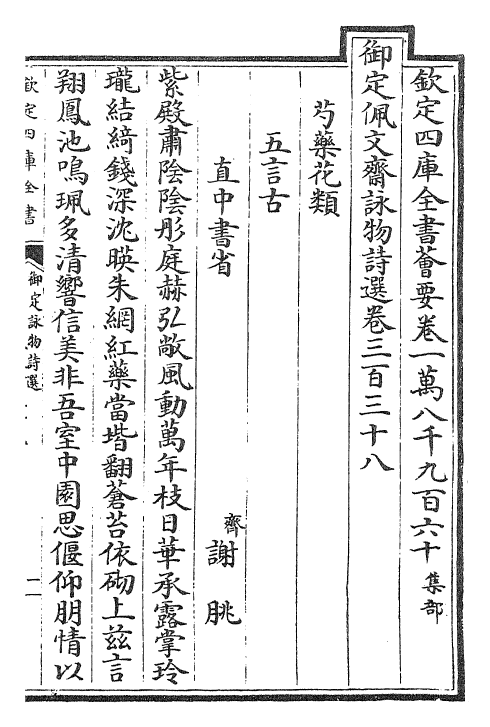 欽定四庫全書薈要卷一萬八千九百六十 集部
御定佩文齋詠物詩選卷三百三十八
芍藥花類
五言古
直中書省 齊 謝朓
紫殿肅陰陰彤庭赫弘敞風動萬年枝日華承露掌玲
瓏結綺錢深沈暎朱網紅藥當堦翻蒼苔依砌上茲言
翔鳳池鳴珮多清響信美非吾室中園思偃仰朋情以
欽定四庫全書
御定詠物詩選
一